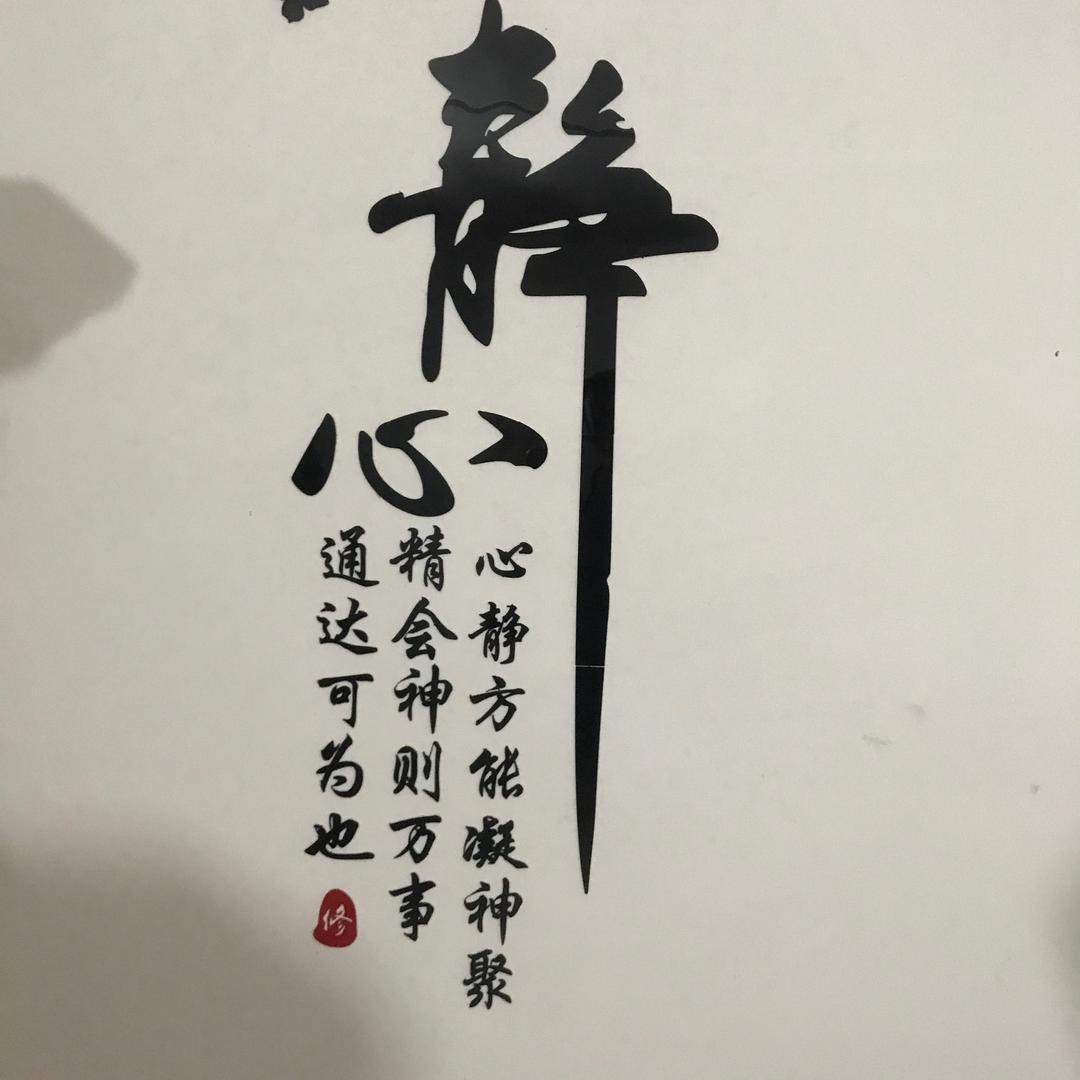 静
心
心静方能凝神聚
精会神则万事
通达可为也
修